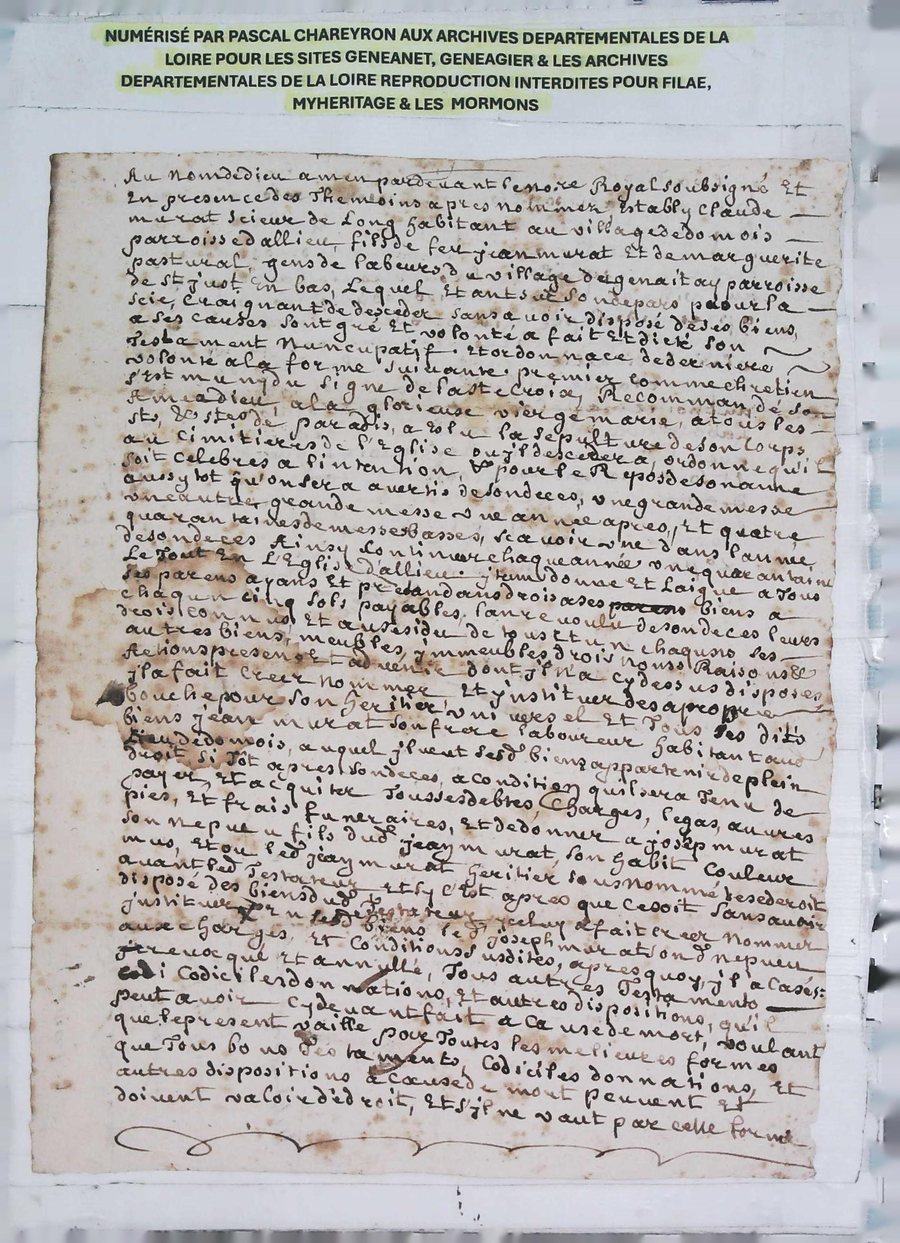 NUMÉRISÉ PAR PASCAL CHAREYRON AUX ARCHIVES DEPARTEMENTALES DE LA
LOIRE POUR LES SITES GENEANET, GENEAGIER & LES ARCHIVES
DEPARTEMENTALES DE LA LOIRE REPRODUCTION INTERDITES POUR FILAE,
MYHERITAGE & LES MORMONS
Au Nom de dieu amen pardevant le nore Royal soubsigné Et
En presence des Themoins apres nommez Estably Claude
murat scieur de Long habitant au village de domois
parroisse d'allieu, fils de feu jean murat Et de marguerite
pastural, gens de labeurs du village de genaitay parroisse
de st just En bas, Lequel Etant sur son depars pour la
scie, Craignant de desceder sans avoir disposé de ses biens,
a ses causes son gré Et volonté a fait Et dicté son
Testament Nuncupatif Et ordonnace de derniere
volonté a la forme suivante, premier comme chretien
s'est muny du signe de la ste croix, Recommandé son
Ame a dieu, a la glorieuse vierge marie, a tous les
sts, Et stes de paradis, a Eslu la sepulture de son Corps
au Cimitiere de l'Eglise ou jl descedera, ordonne qu'il
soit Celebres a l'intention, & pour le Repos de son ame
aussytot qu'on sera avertis de son deces, une grande messe
une autre grande messe une année apres, Et quatre
quarantaines de messes basses, scavoir une dans l'année
de son deces Ainsy Continuer chaque année une quarantaine
Le Tout En L'Eglise d'allieu. jtem donne Et Laigue a Tous
ses parens ayans Et pretandans drois a ses biens a
chaqun Cinq sols payables, l'an revolu de son deces leurs
drois connus, Et au residu de tous Et un chaquns ses
autres biens, meubles, jmmeubles, drois noms Raisons &
Actions presens Et advenir dont jl n'a cy dessus disposés
jl a fait Creer Nommer Et jnstituer de sa propre
bouche pour son heritier universel Et Tous ses dits
biens jean murat son frere laboureur habitant aud
lieu de domois, auquel jl veut sesd biens appartenir de plein
droit si Tôt apres son deces, a condition quil sera Tenu de
payer, Et acquiter Tous ses debtes, Charges, legas, œuvres
pies, Et frais funeraires, Et de donner a josep murat
son nepveu fils dud jean murat, son habit Couleur
mus, Et ou led jean murat heritier susnommé desederoit
avant led Testateur Et sy C'est apres que ce soit sans avoir
disposé des biens dud Testateur, jceluy a fait creer Nommer
jnstituer En sesd biens led joseph murat sond nepveu
aux charges, Et Conditions susdites, apres quoy, jl a Casés:
revoque Et annullé, Tous autres Testaments
Codicilles donnations, Et autres dispositions, qu'il
peut avoir Cy devant fait a Cause de mort, voulant
que le present vaille par Toutes les melieures formes
que Tous bons Testaments, Codiciles donnations, Et
autres dispositions a cause de mort peuvent Et
doivent valoir de droit, Et s'il ne vaut par celle forme